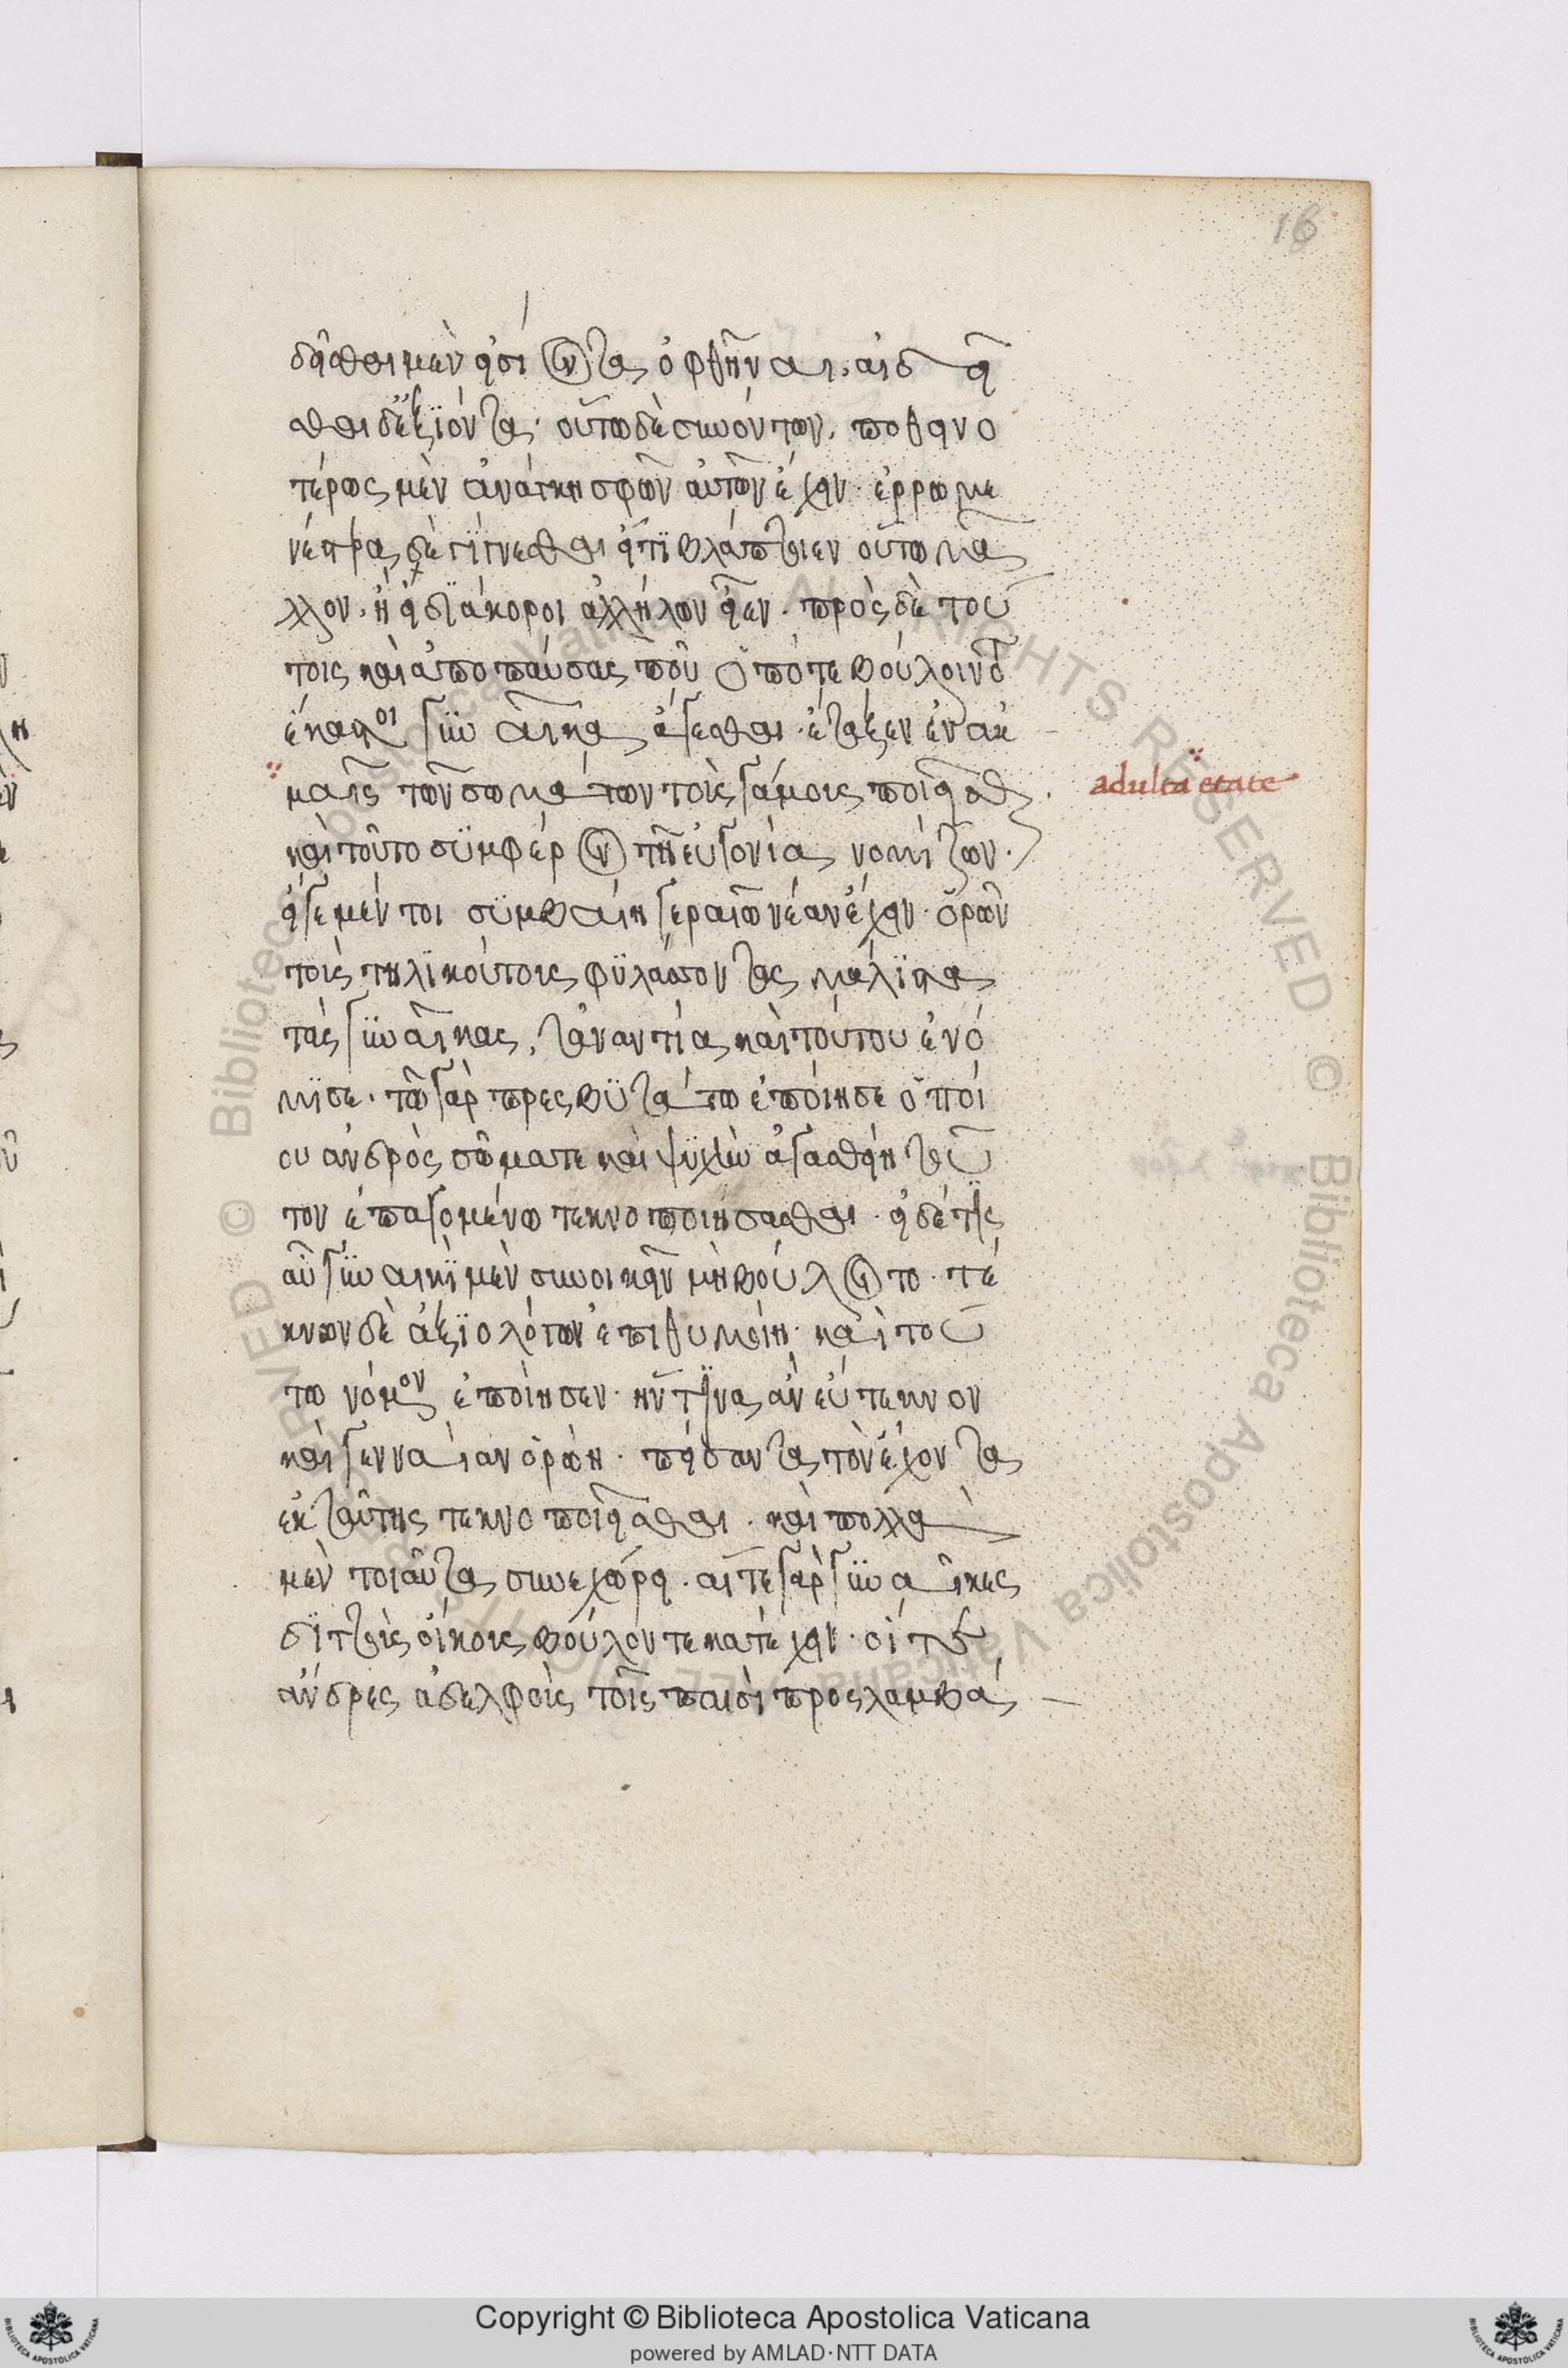 16
δεῖσθαι μὲν εἰσιόντα ὀφθῆναι. αἰδεῖ
σθαι δ' ἐξιόντα. οὕτω δὲ συνόντων. ποθεινο
τέρως μὲν ἀνάγκη σφῶν αὐτῶν ἔχειν. ἐρρωμε
νέστερα δὲ γίγνεσθαι εἴ τι βλάπτοιεν οὕτω μᾶ
λλον. ἢ εἰ διάκοροι ἀλλήλων εἶεν. πρὸς δὲ τού
τοις καὶ ἀποπαύσας τοῦ ὁπότε βούλοιντο
ἕκαστοι γυναῖκα ἄγεσθαι. ἔταξεν ἐν ἀκ
μαῖς τῶν σωμάτων τοὺς γάμους ποιεῖσθαι.
adulta etate
καὶ τοῦτο συμφέρον τῇ εὐγονίᾳ νομίζων.
εἴ γε μέντοι συμβαίη γεραιῷ νέαν ἔχειν. ὁρῶν
τοὺς τηλικούτους φυλάττοντας μάλιστα
τὰς γυναῖκας, τἀναντία καὶ τούτου ἐνό
μισε. τῷ γὰρ πρεσβυτάτῳ ἐποίησε ὁποί
ου ἀνδρὸς σῶμά τε καὶ ψυχὴν ἀγασθείη τοῦ
τον ἐπαγομένῳ τεκνοποιήσασθαι. εἰ δέ τις
αὖ γυναικὶ μὲν συνοικεῖν μὴ βούλοιτο. τέ
κνων δὲ ἀξιολόγων ἐπιθυμοίη. καὶ τοῦ
το νόμον ἐποίησεν. ἥντινα ἂν εὔτεκνον
καὶ γενναίαν ὁρῴη. πείσαντα τὸν ἔχοντα
ἐκ ταύτης τεκνοποιεῖσθαι. καὶ πολλὰ
μὲν τοιαῦτα συνεχώρει. αἵ τε γὰρ γυναῖκες
διττοὺς οἴκους βούλονται κατέχειν. οἵ τε
ἄνδρες ἀδελφοὺς τοῖς παισὶ προσλαμβά
Copyright © Biblioteca Apostolica Vaticana
powered by AMLAD·NTT DATA